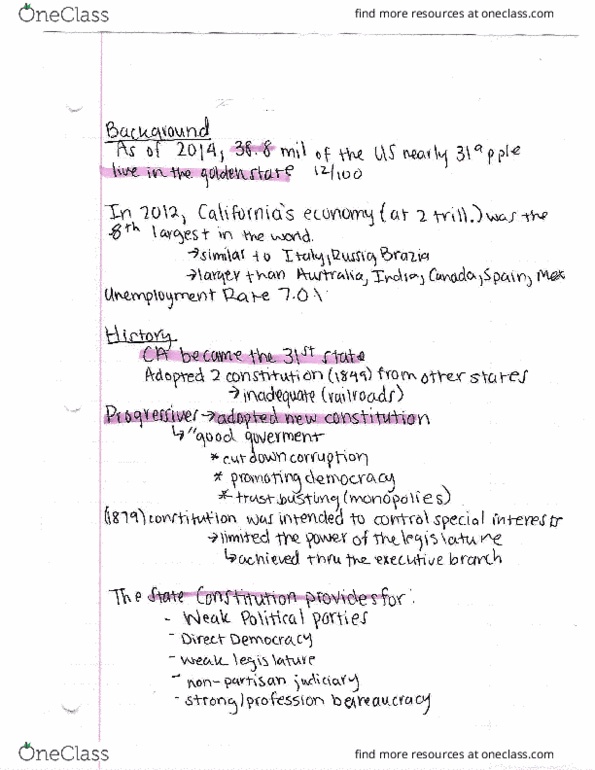 OneClass
find more resources at oneclass.com
Background
As of 2014, 38.8 mil of the US nearly 319 pple
live in the golden state 12/100
In 2012, California's economy (at 2 trill.) was the
8th largest in the world.
→ similar to Italy, Russia, Brazia
→ larger than Australia, India, Canada, Spain, Mex
Unemployment Rate 7.0\
History
CA became the 31st state
Adopted 2 constitution (1849) from other states
→ inadequate (railroads)
Progressives → adopted new constitution
↳ "good goverment
* cut down corruption
* promoting democracy
* trust busting (monopolies)
(1879) constitution was intended to control special interests
→ limited the power of the legislature
↳ achieved thru the executive branch
The State Constitution provides for:
- Weak Political parties
- Direct Democracy
- weak legislature
- non-partisan judiciary
- strong/profession beareaucracy
OneClass
find more resources at oneclass.com